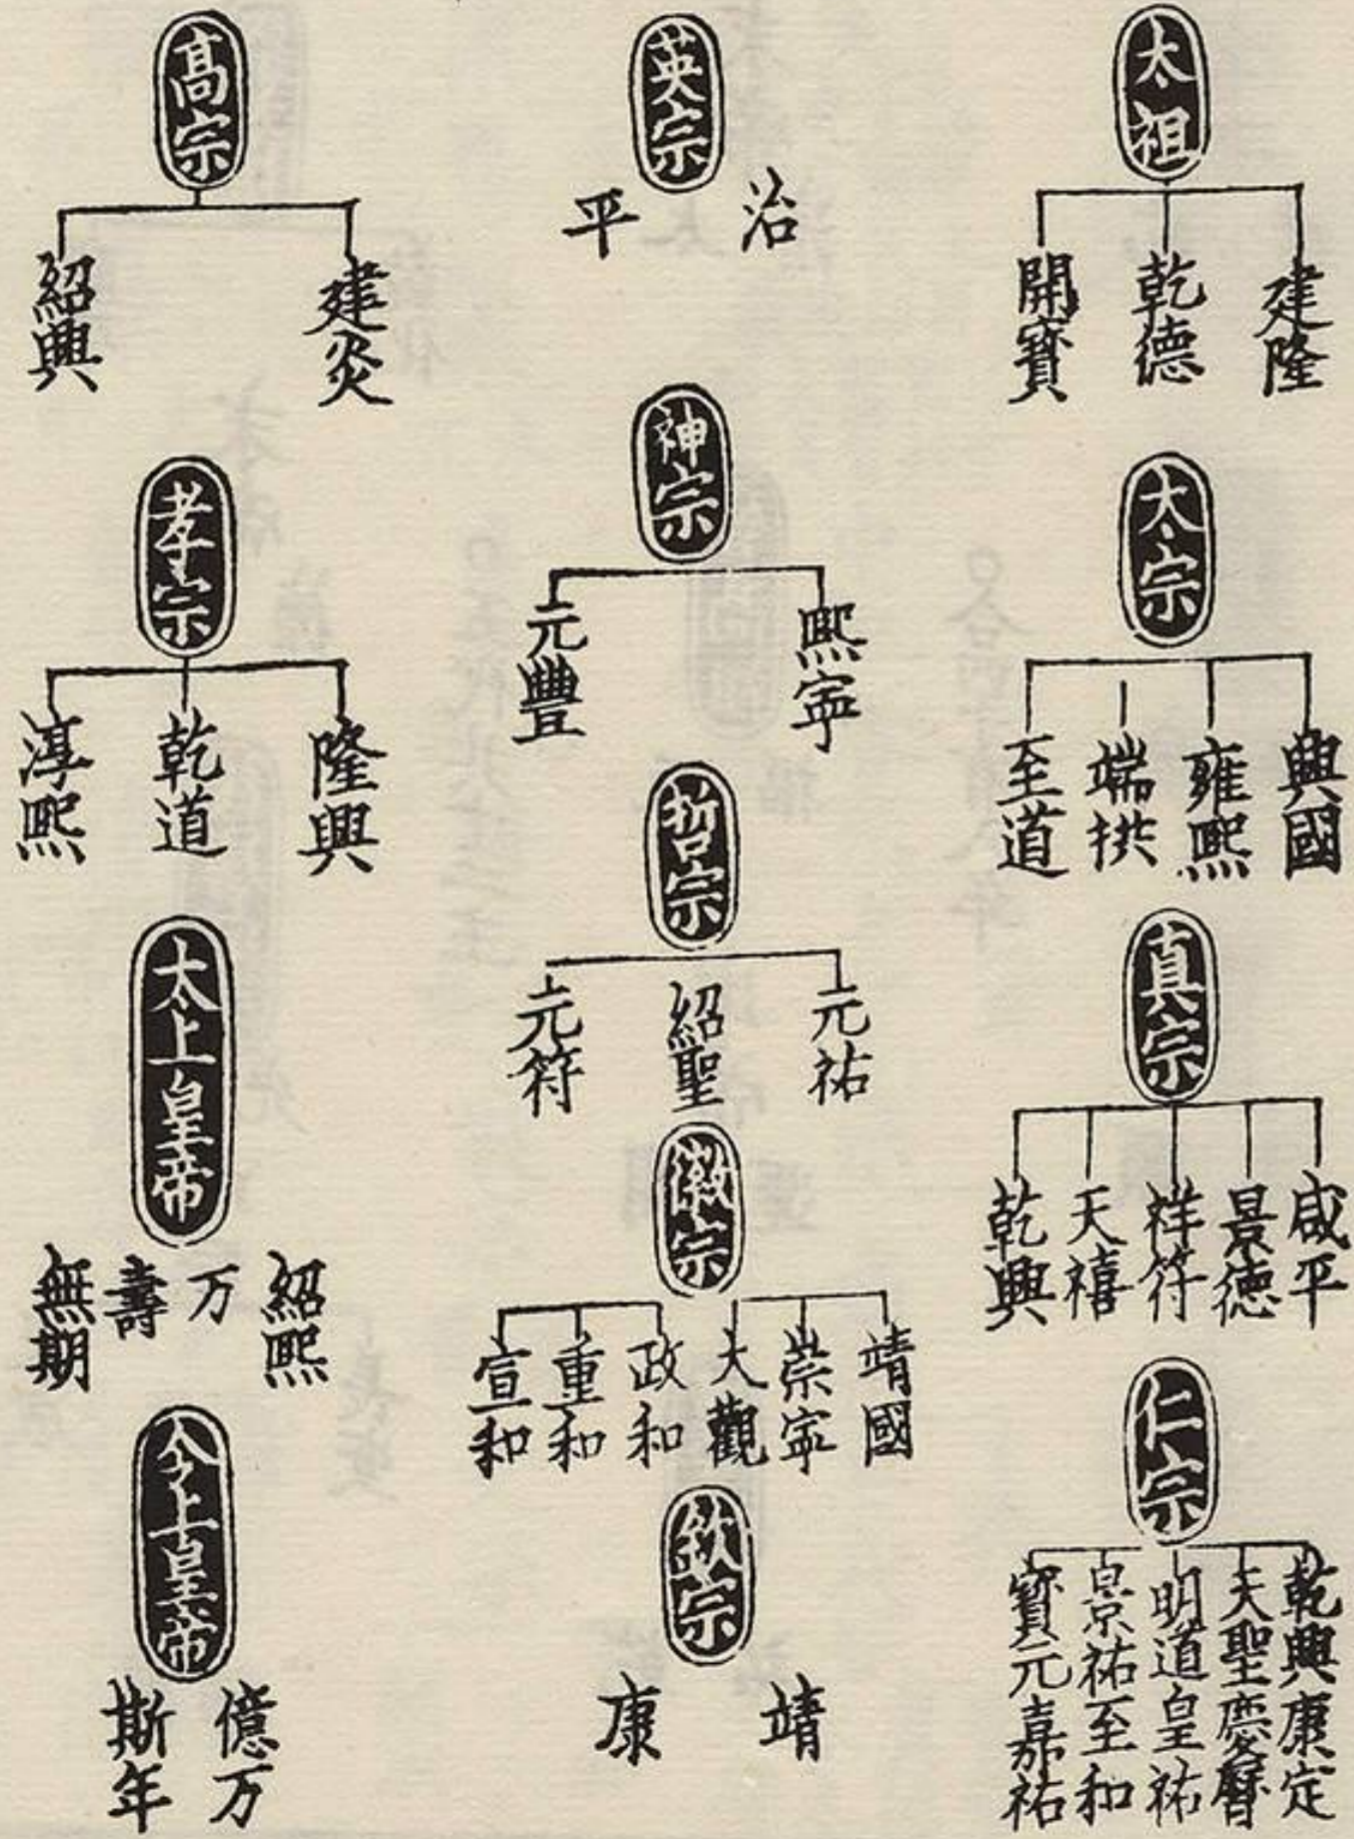 太祖
建隆
乾德
開寶
太宗
興國
雍熙
端拱
至道
真宗
咸平
景德
祥符
天禧
乾興
仁宗
乾興康定
天聖慶曆
明道皇祐
景祐至和
寶元嘉祐
英宗
治平
神宗
熙寧
元豐
哲宗
元祐
紹聖
元符
徽宗
靖國
崇寧
大觀
政和
重和
宣和
欽宗
靖康
高宗
建炎
紹興
孝宗
隆興
乾道
淳熙
太上皇帝
紹熙
万
壽
無期
今上皇帝
億万
斯年